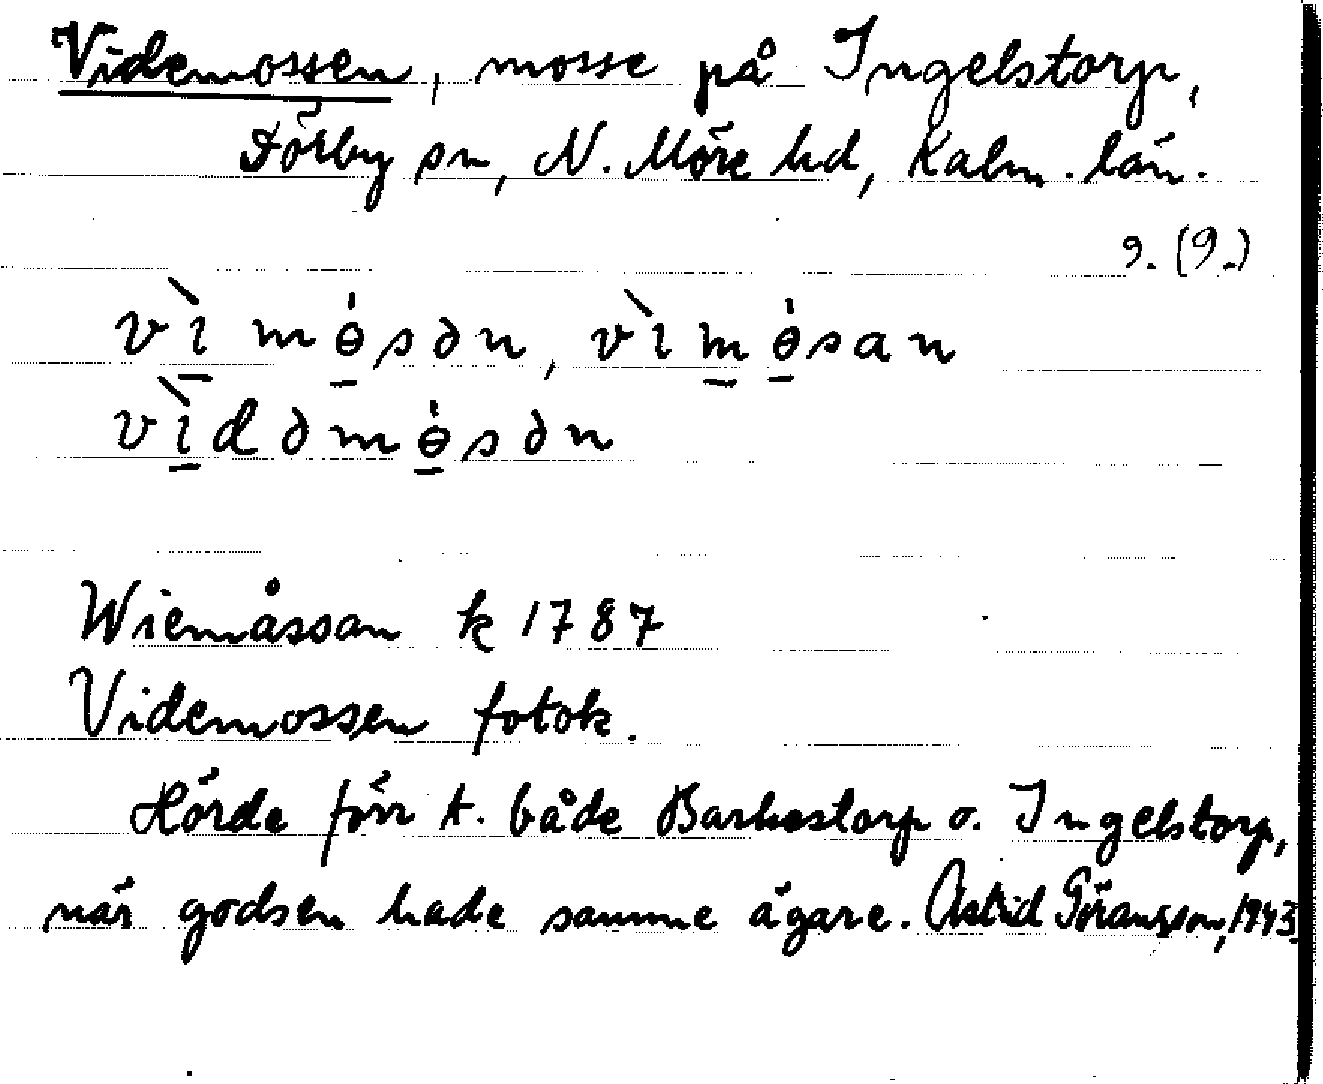 Videmossen, mosse på Ingelstorp,
Förby sn, N. Möre hd, Kalm. län.
9. (9.)
vì̱ mɵ̱̇sən, vìm̱ɵ̱̇san
vì̱dəmɵ̱̇sən
Wiemåssan k 1787
Videmossen fotok.
Hörde förr t. både Barkestorp o. Ingelstorp,
när godsen hade samme ägare. Astrid Göransson, 1943.